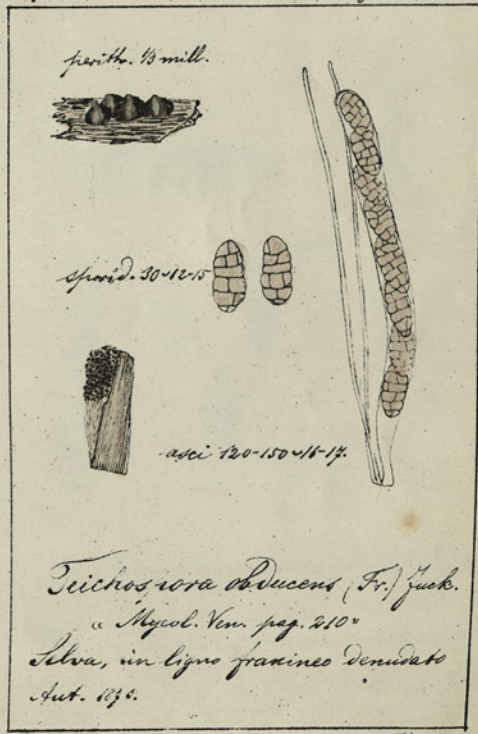 perith. ⅓ mill.
sporid. 30 ~ 12-15
asci 120-150 ~ 16-17.
Teichospora obducens (Fr.) Fuck.
"Mycol. Ven. pag. 210"
Selva, in ligno fraxineo denudato
Aut.